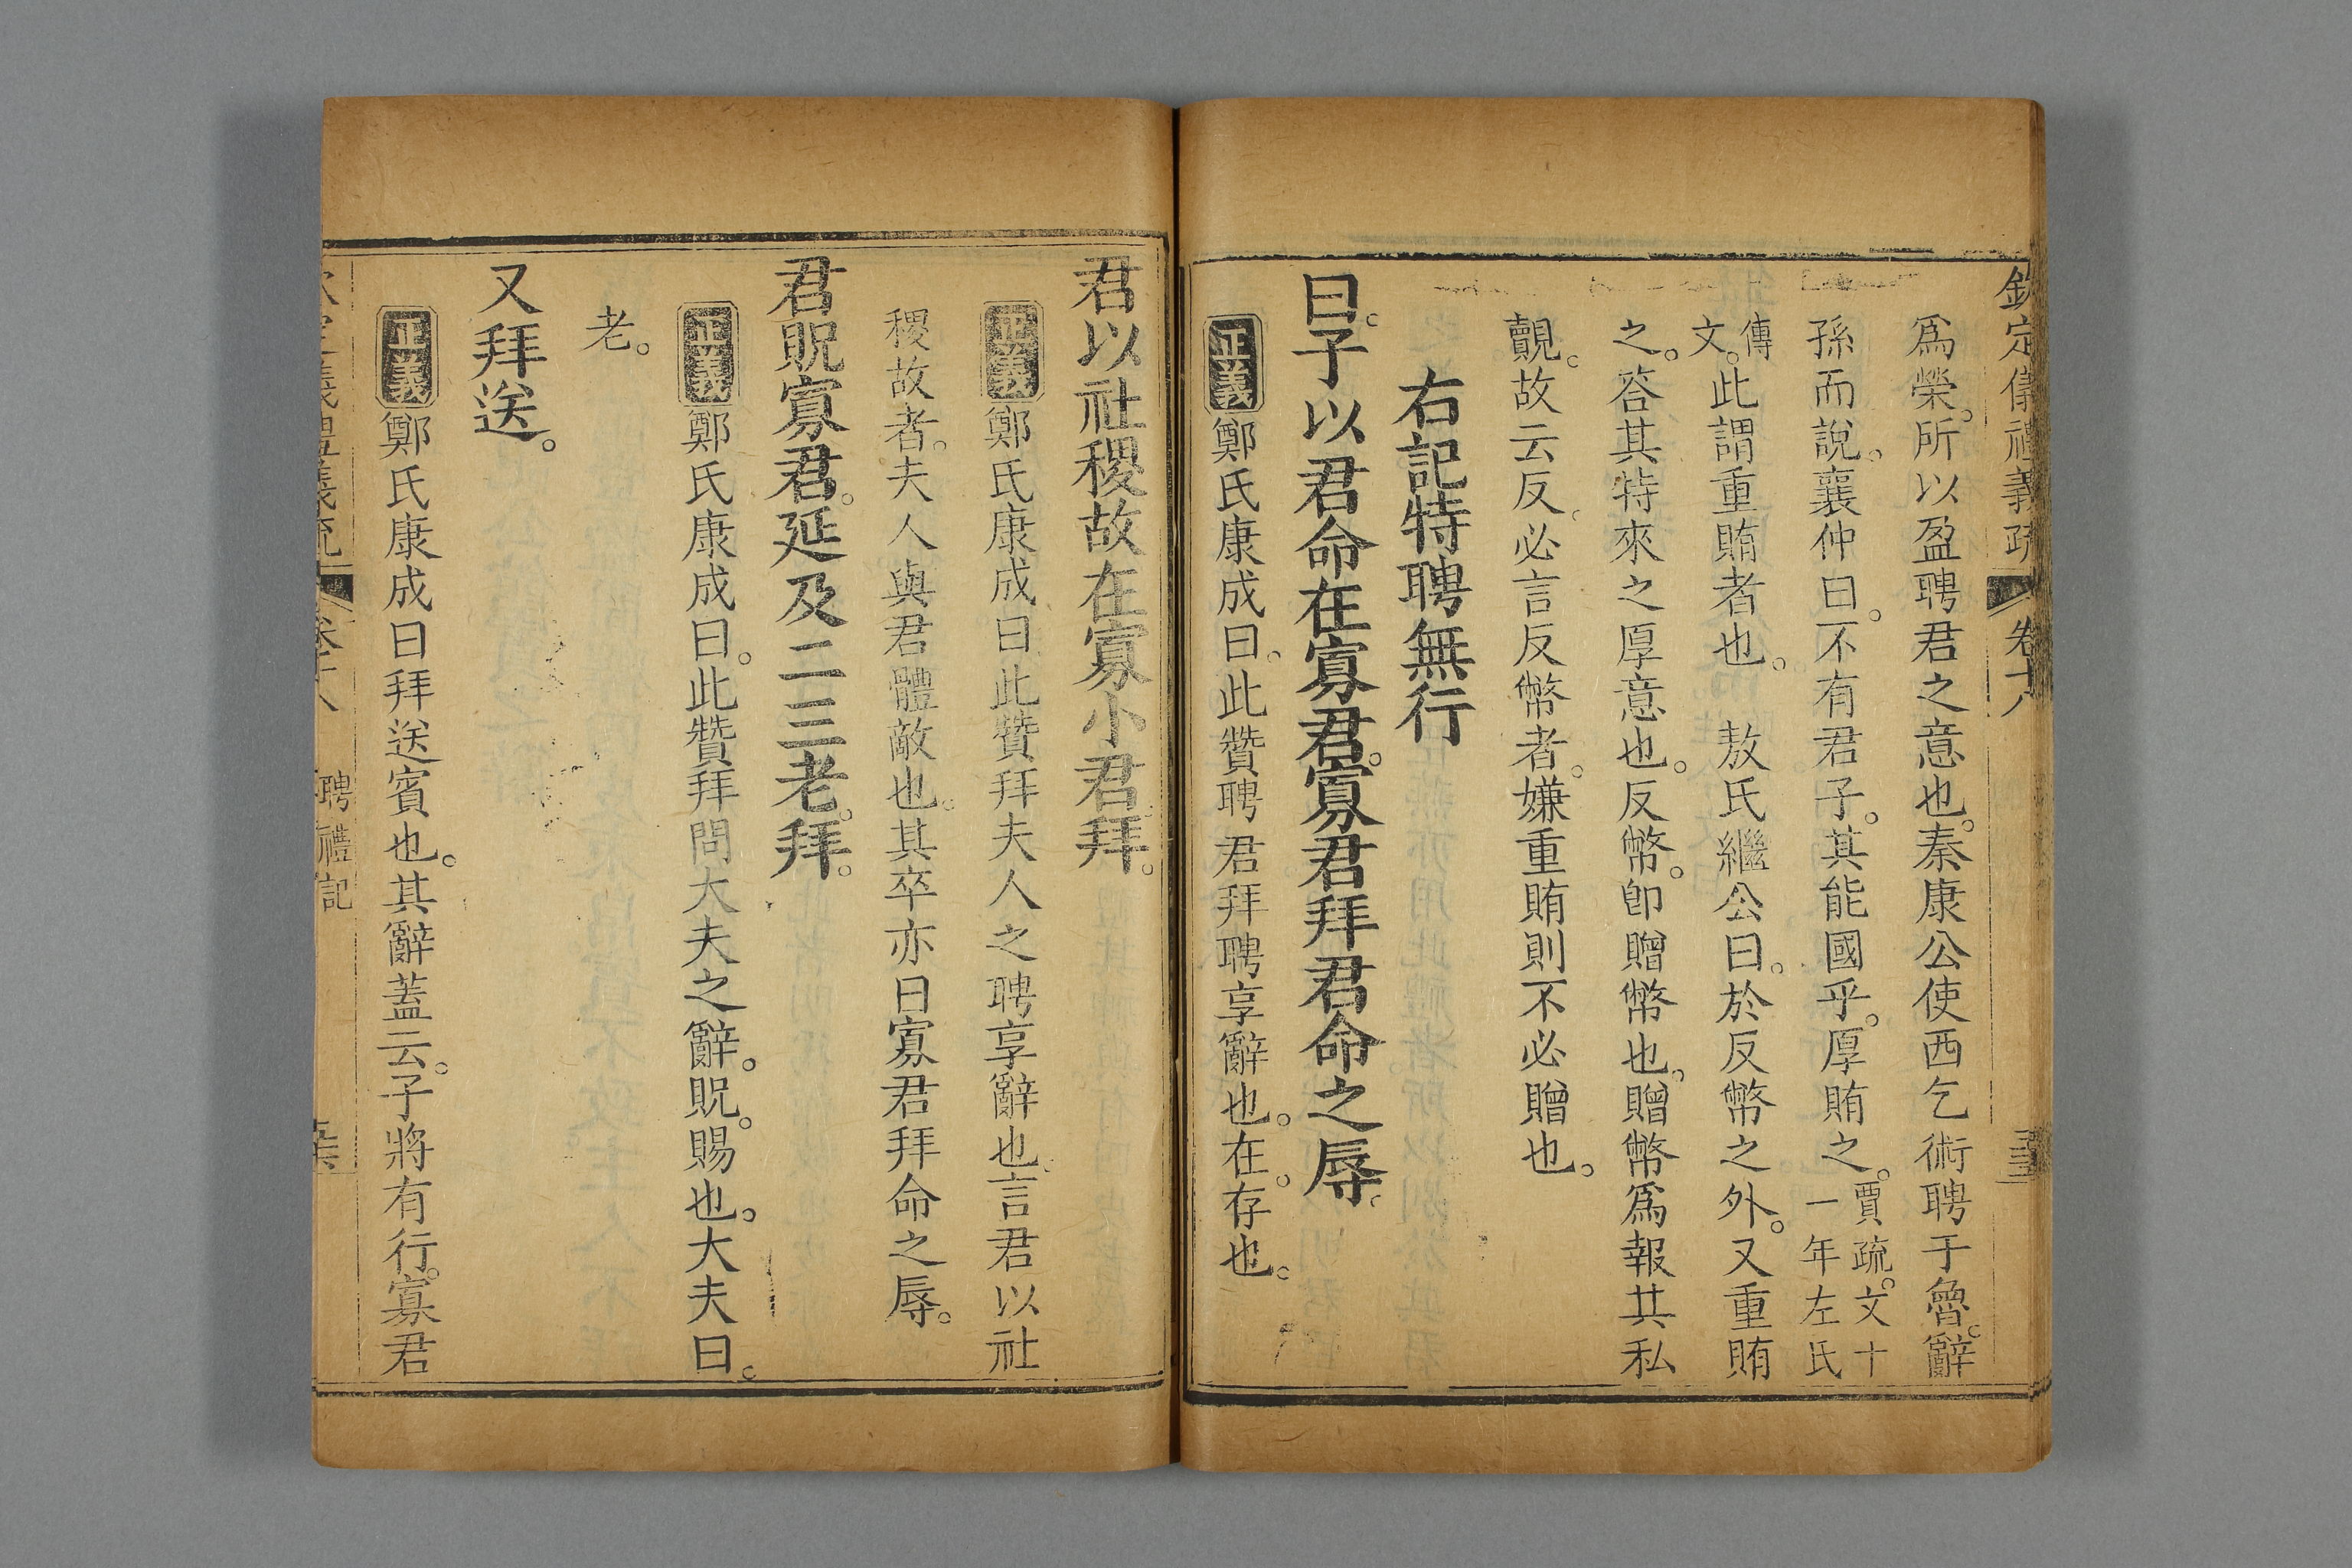 欽定儀禮義疏 卷十八
爲榮。所以盈聘君之意也。秦康公使西乞術聘于魯。辭
孫而說。襄仲曰。不有君子。其能國乎。厚賄之。賈疏。文十一年左氏
傳文。此謂重賄者也。 敖氏繼公曰。於反幣之外。又重賄
之。答其特來之厚意也。反幣。卽贈幣也。贈幣爲報其私
覿。故云反。必言反幣者。嫌重賄則不必贈也。
右記特聘無行
曰。子以君命在寡君。寡君拜君命之辱。
正義鄭氏康成曰。此贊聘君拜聘享辭也。在。存也。
君以社稷故在寡小君拜。
正義鄭氏康成曰此贊拜夫人之聘享辭也。言君以社
稷故者。夫人與君體敵也。其卒亦曰寡君拜命之辱。
君貺寡君。延及二三老。拜。
正義鄭氏康成曰。此贊拜問大夫之辭。貺。賜也。大夫曰。
老。
又拜送。
正義鄭氏康成曰拜送賓也。其辭蓋云。子將有行。寡君
聘禮記